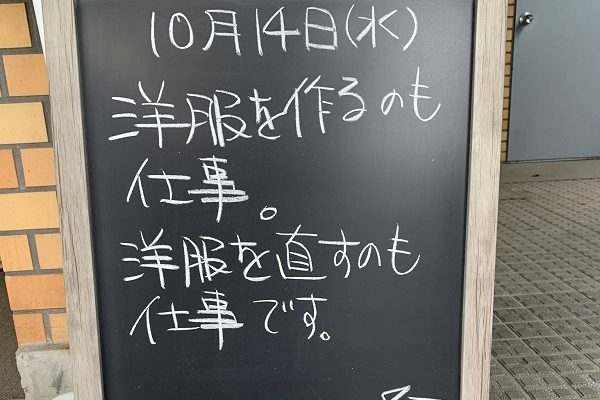 10月14日(水)
洋服を作るのも
仕事。
洋服を直すのも
仕事です。